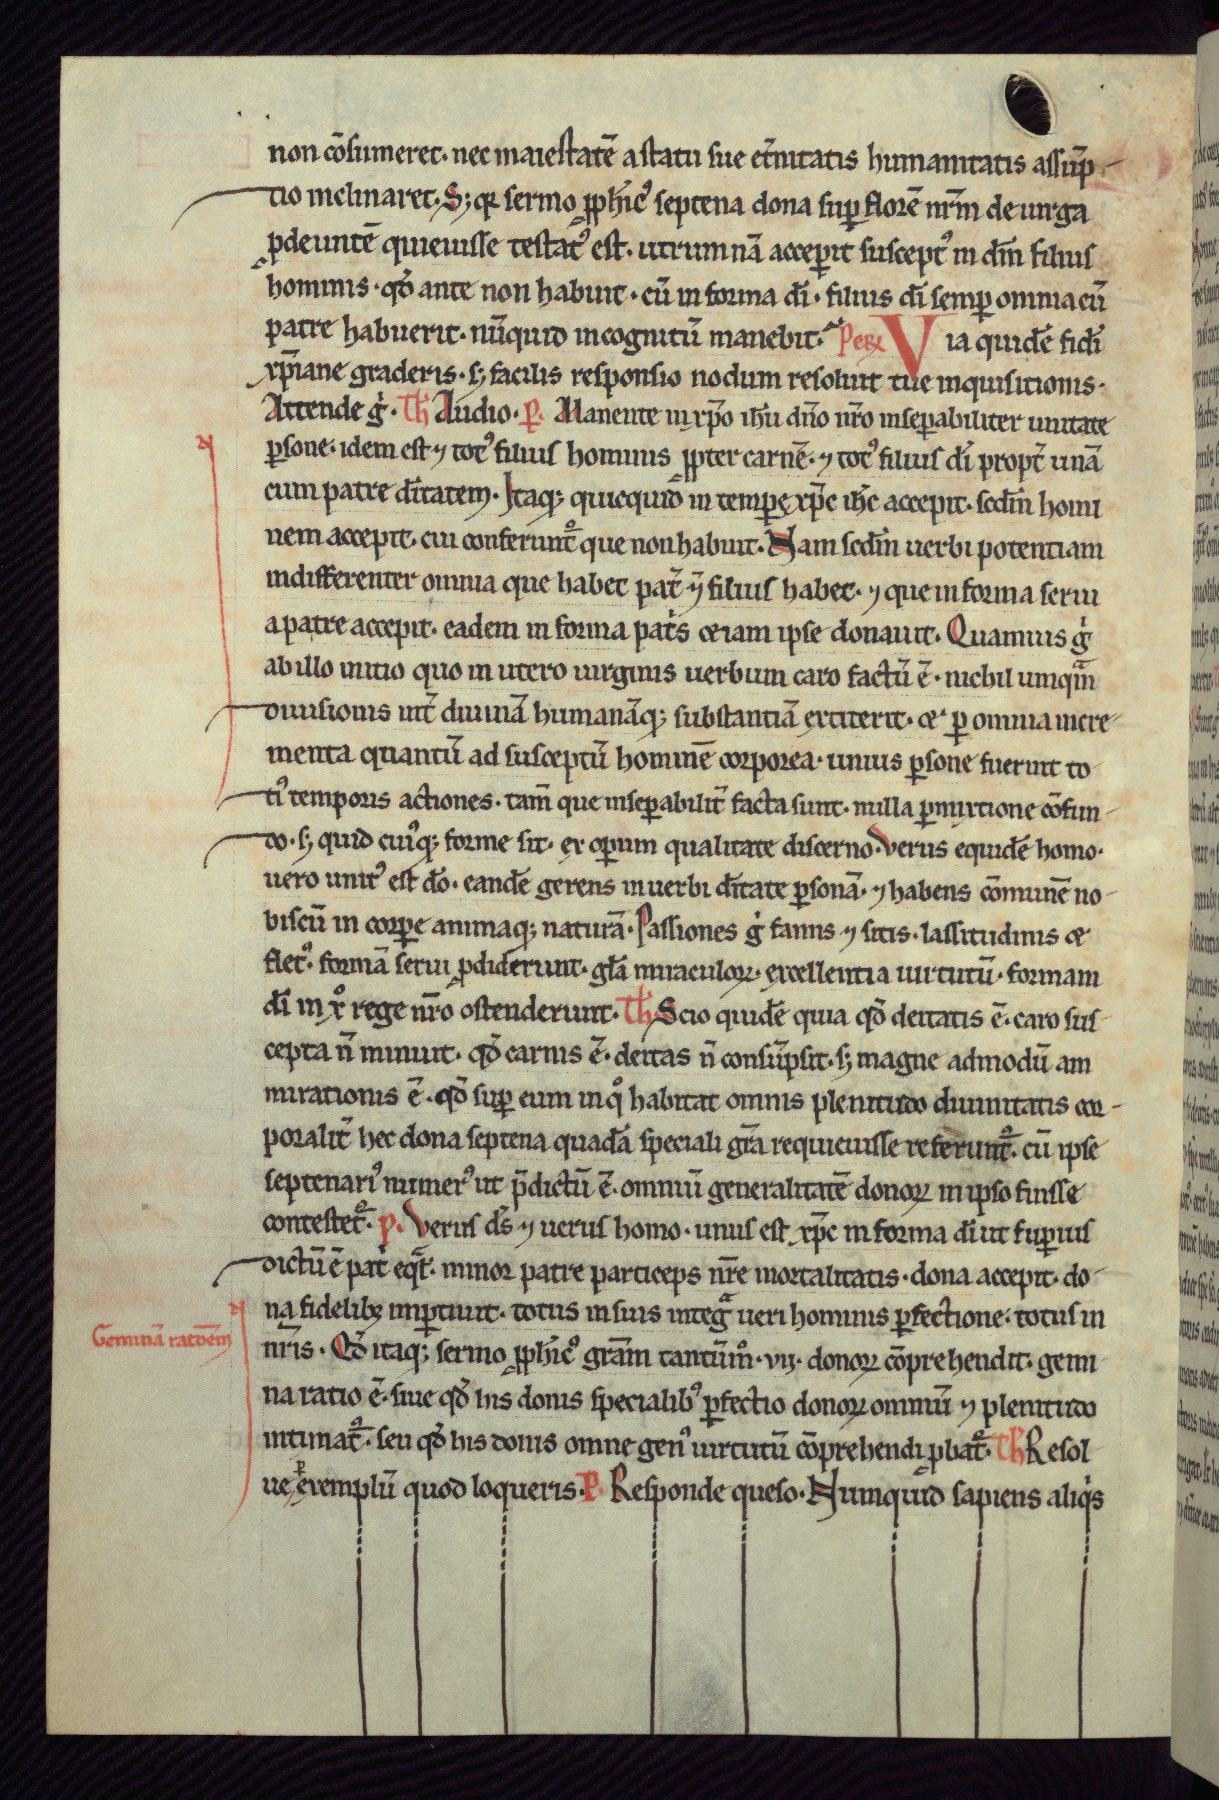 non cōsumeret · nec maiestatē a statu sue et̄nitatis humanitatis assūp-
tio inclinaret · Sꝫ qꝛ sermo ꝓph̄icꝰ septena dona suꝑ florē nr̄m de uirga
ꝓdeuntē quieuisse testatꝰ est · utrumnā acceperit susceptꝰ in dm̄ filius
hominis · qd̄ ante non habuit · cū in forma dī · filius dī semꝑ omnia cū
patre habuerit · nūquid incognitū manebit · Petꝝ Via quidē fidī
xp̄iane graderis · sꝫ facilis responsio nodum resoluit tue inquisitionis ·
Attende g̊ · Th̄ Audio · P · Manente in xp̄o ih̄u dn̄o nr̄o inseꝑabiliter unitate
ꝑsone · idem est ⁊ totꝰ filius hominis ꝓpter carnē · ⁊ totꝰ filius dī propt̄ unā
cum patre dītatem · Itaqꝫ quicquid in tempe xp̄c ih̄c accepit · scdm̄ homi
nem accepit · cui conferunt̉ que non habuit · Nam scdm̄ uerbi potentiam
indifferenter omnia que habet pat̄ ⁊ filius habet · ⁊ que in forma serui
a patre accepit · eadem in forma pat̉s etiam ipse donauit · Quamuis g̊
ab illo initio quo in utero uirginis uerbum caro factū ē · nichil umqm̄
diuisionis int̄ diuinā humanāqꝫ substantiā extiterit · et ꝑ omnia incre-
menta quantū ad susceptū hominē corporea · unius ꝑsone fuerint to
tiꝰ temporis actiones · tam̄ que inseꝑabilit̄ facta sunt · nulla ꝑmixtione cōfun-
do · sꝫ quid cuiꝰqꝫ forme sit · ex oꝑum qualitate discerno · Verus equidē homo ·
uero unitꝰ est dō · eandē gerens in uerbi dītate ꝑsonā · ⁊ habens cōmunē no-
biscū in corꝑe animaqꝫ naturā · Passiones g̊ famis ⁊ sitis · lassitudinis et
fletꝰ · formā serui ꝓdiderunt · glā miraculoꝝ · excellentia uirtutū · formam
dī in xº rege nr̄o ostenderunt · Th̄ Scio quidē quia qd̄ deitatis ē · caro sus-
cepta n̄ minuit · qd̄ carnis ē · deitas n̄ consūpsit · sꝫ magne admodū am
mirationis ē · qd̄ suꝑ eum in qº habitat omnis plenitudo diuinitatis cor-
poralit̄ hec dona septena quadā speciali grā requieuisse referunt̉ · cū ipse
septenariꝰ numerꝰ ut p̄dictū ē · omniū generalitatē donoꝝ in ipso fuisse
contestet̉ · P · Verus ds̄ ⁊ uerus homo · unus est xp̄c in forma dī ut suꝑius
dictū ē pat̉ eqͣt · minor patre particeps nr̄e mortalitatis · dona accepit · do-
na fidelibꝫ imꝑtiuit · totus in suis integͣ ueri hominis ꝑfectione · totus in
nr̄is · Qd̄ itaqꝫ sermo ꝓph̄icꝰ grām tantūmº · vii · donoꝝ cōprehendit · gemi
na ratio ē · siue qd̄ his donis specialibꝰ ꝑfectio donoꝝ omniū ⁊ plenitudo
intimat̉ · seu qd̄ his donis omne genꝰ uirtutū cōprehendi ꝓbat̉ · Th̄ Resol
ue ꝑ exemplū quod loqueris · P · Responde queso · Numquid sapiens aliqͥs
Geminā ratōem